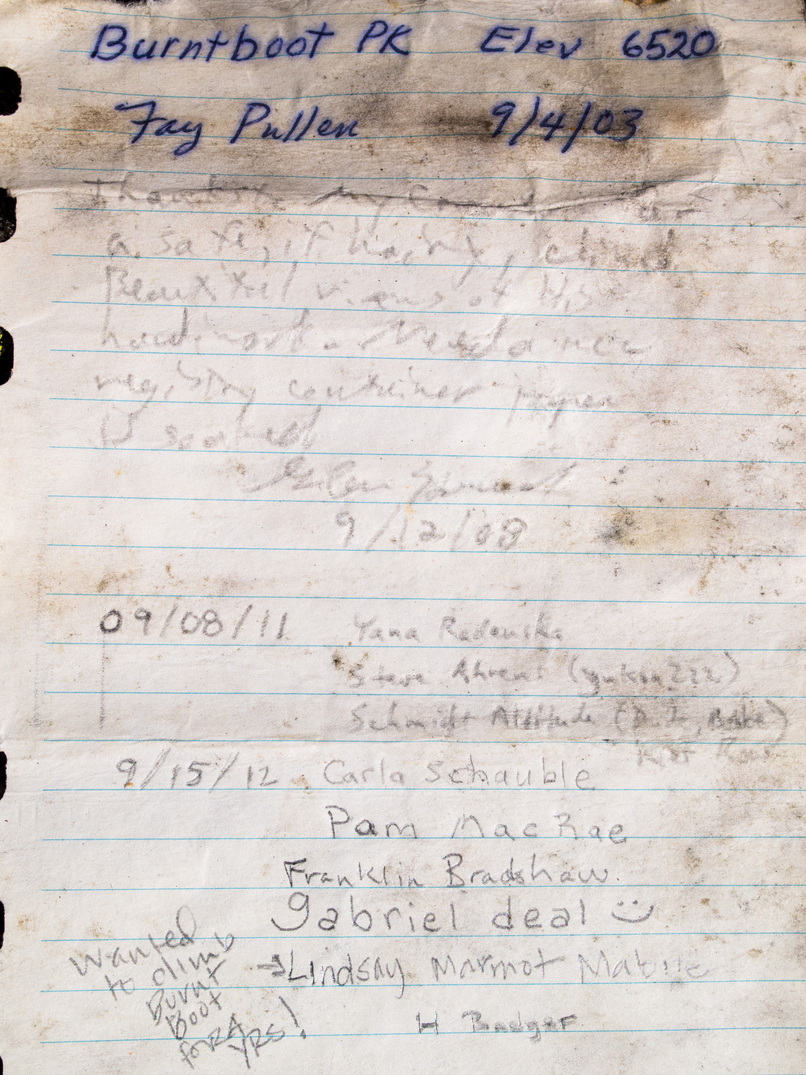 Burntboot PK Elev 6520
Fay Pullen 9/4/03
a safe, if hairy,
Beautiful views of His
Need a new
registry container paper
is soaked
9/12/08
09/08/11 Yana Radenska
Steve Ahrens (yukon222)
Schmidt Altitude
9/15/12 Carla Schauble
Pam MacRae
Franklin Bradshaw.
gabriel deal
→Lindsay Marmot Malone
H Badger
Wanted
to climb
Burnt
Boot
YRS!